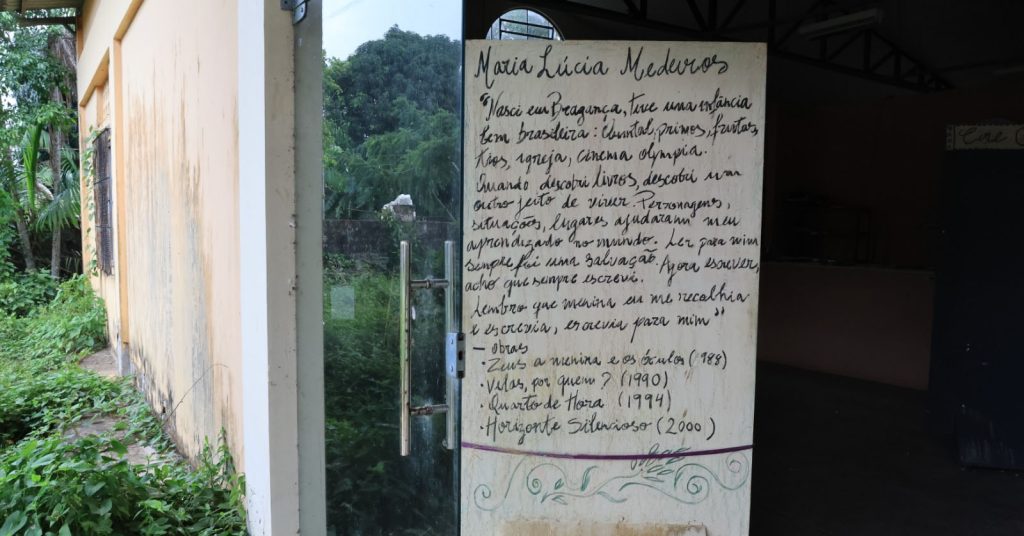 Maria Lúcia Medeiros
"Nasci em Bragança, tive uma infância
bem brasileira: Quintal, primos, frutas,
tios, igreja, cinema olympia.
Quando descobri livros, descobri um
outro jeito de viver. Personagens,
situações, lugares ajudaram meu
aprendizado no mundo. Ler para mim
sempre foi uma salvação. Agora escrever,
acho que sempre escrevi.
Lembro que menina eu me recolhia
e escrevia, escrevia para mim"
— Obras
· Zeus a menina e os óculos (1988)
· Velas, por quem? (1990)
· Quarto de Hora (1994)
· Horizonte Silencioso (2000)
Cine